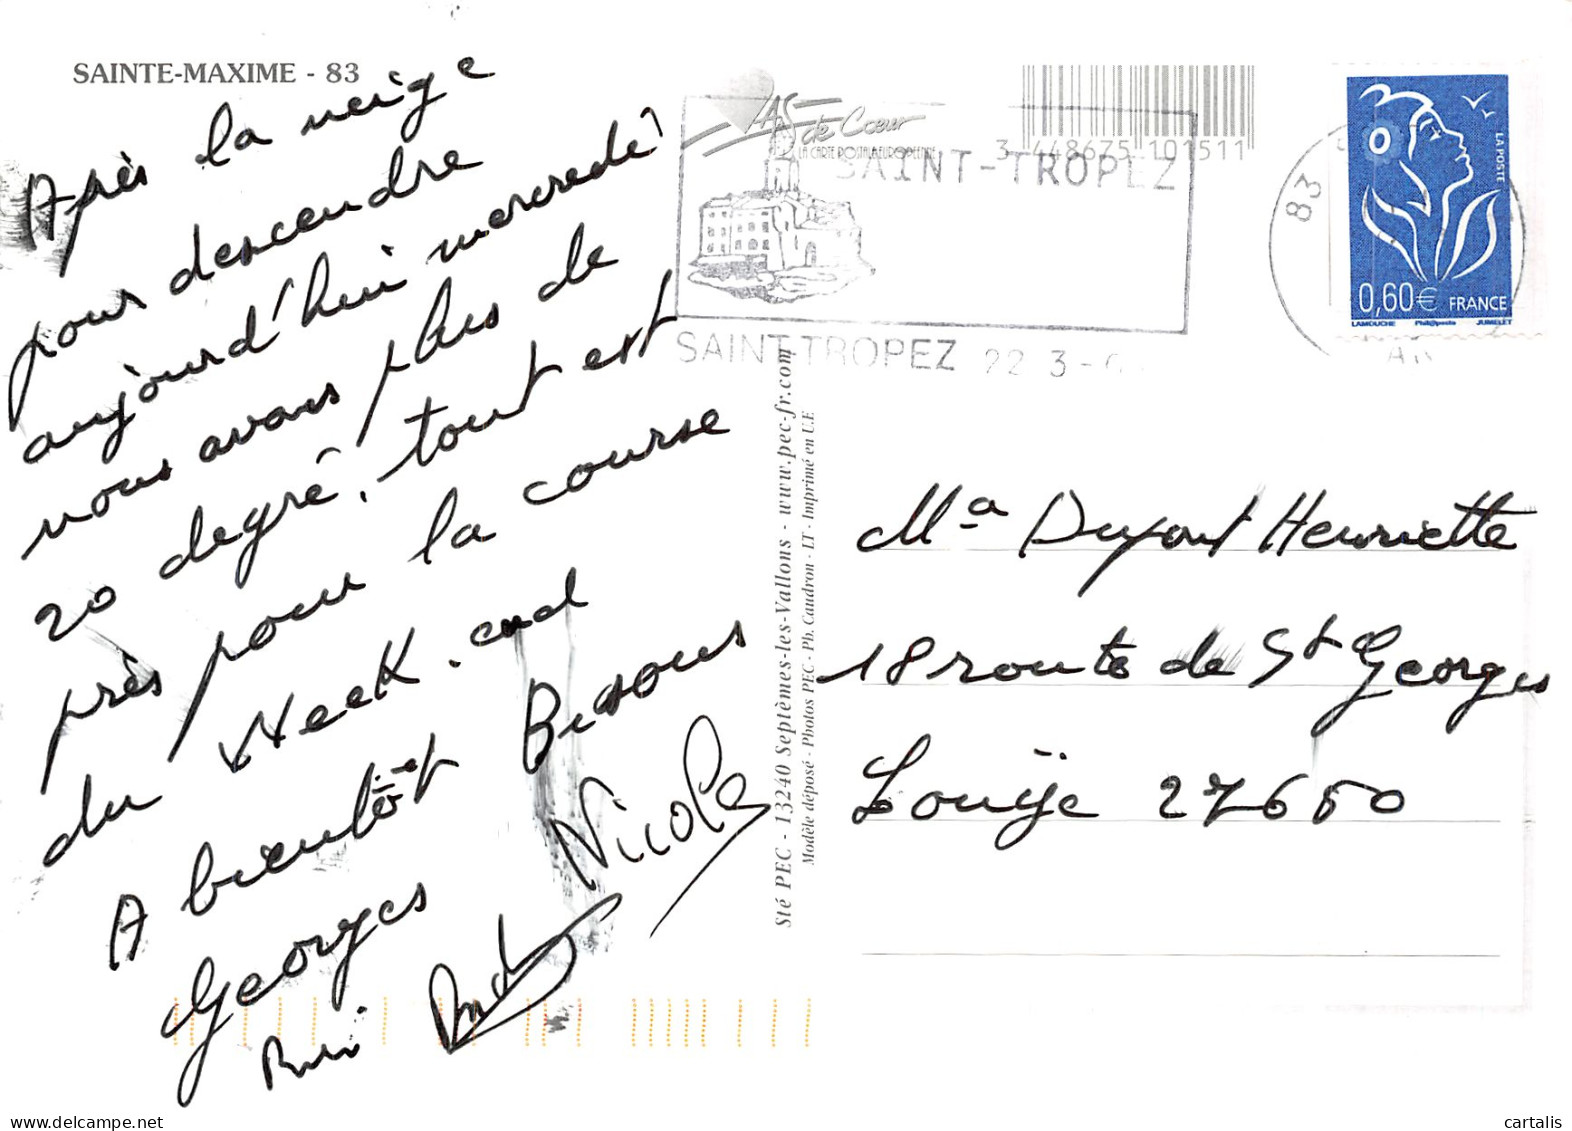 SAINTE-MAXIME - 83
Après la neige
pour descendre
aujourd'hui mercredi
nous avons plus de
20 degré, tout est
près pour la course
du Week.end
A bientôt Bisous
Georges Nicole
As de Cœur
LA CARTE POSTALE EUROPEENNE
3 448675 101511
SAINT-TROPEZ
SAINT TROPEZ 22 3-0
83
LA POSTE
0,60€ FRANCE
LAMOUCHE Phil@poste JUMELET
Sté PEC - 13240 Septèmes-les-Vallons - www.pec-fr.com
Modèle déposé - Photos PEC - Ph. Caudron - LT - Imprimé en U.E
Mᵃ Dupont Henriette
18 route de St Georges
Louÿe 27650
cartalis.delcampe.net
cartalis